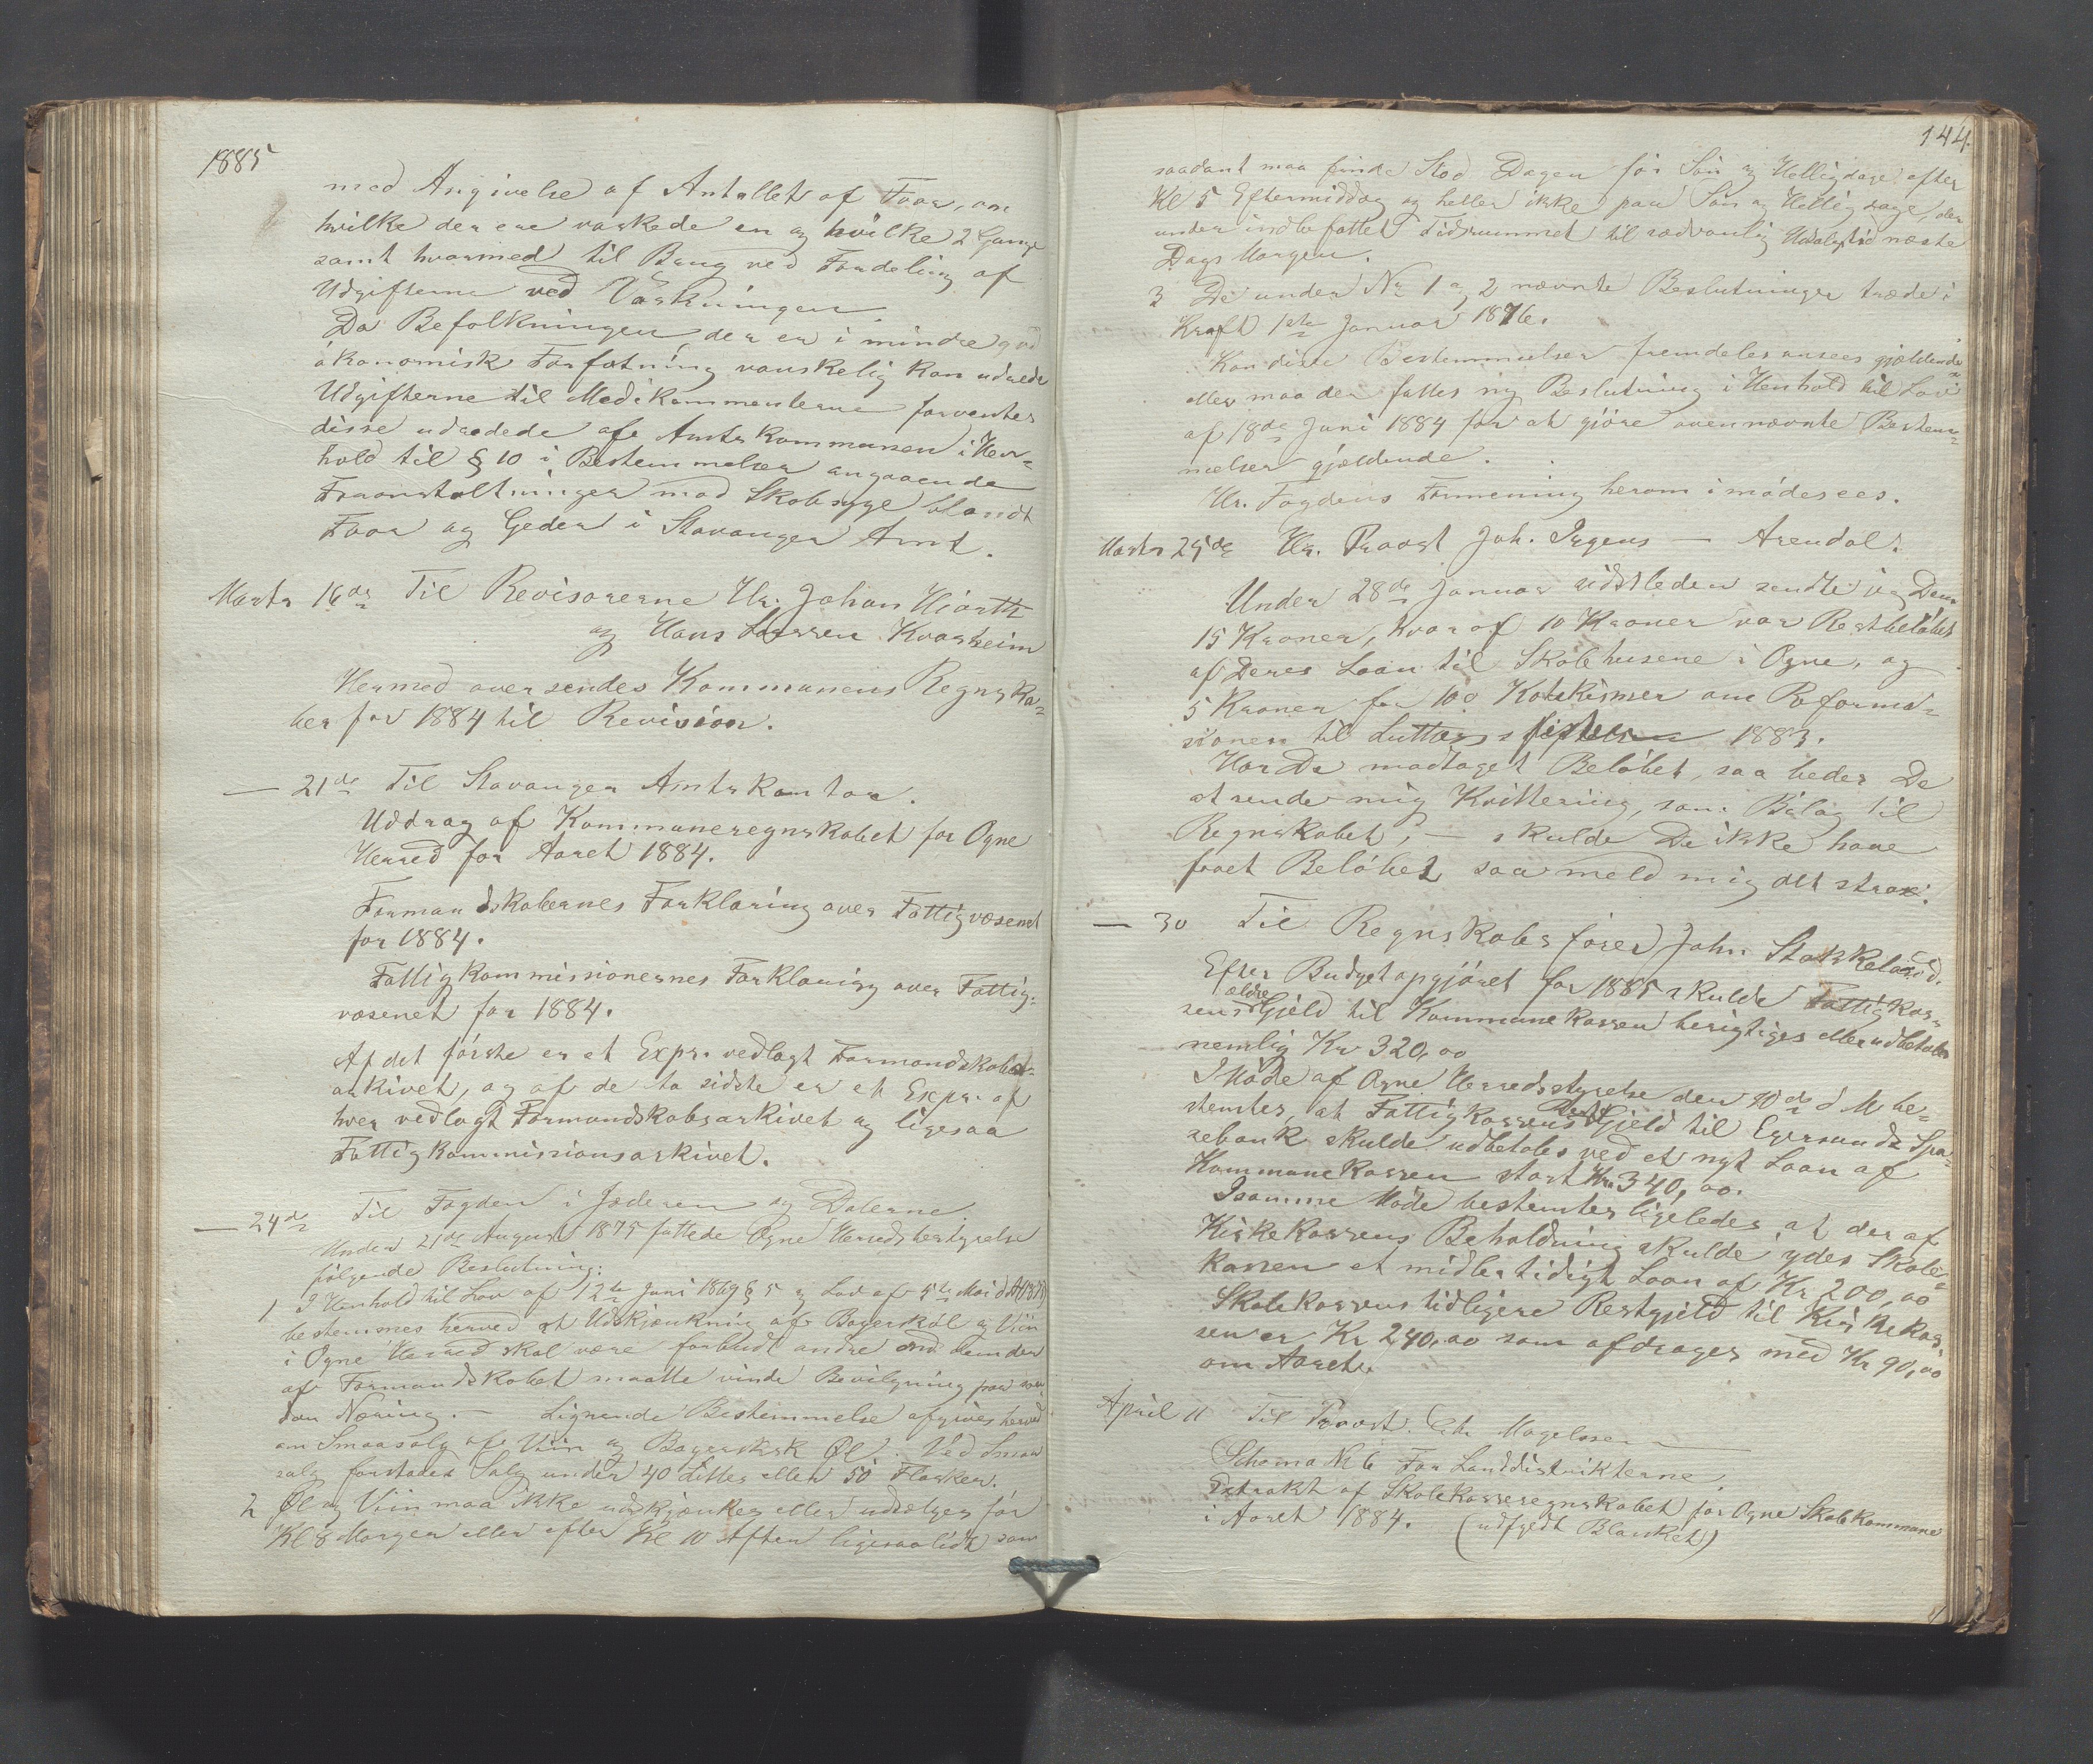 1885
med Angivelse af Antallet af Faar, om
hvilke der ere vaskede en og hvilke 2 Gange
samt hvormed til Brug ved Fordeling af
Udgifterne ved Vaskningen.
Da Befolkningen, der er i mindre god
økonomisk Forfatning vanskelig kan udrede
Udgifterne til Medikamenterne forventes
disse udredede af Amtskommunen i Hen-
hold til § 10 i Bestemmelser angaaende
Foranstaltninger mod Skabsyge blandt
Faar og Geder i Stavanger Amt.
Marts 16de Til Revisorerne Hr. Johan Hiorth
og Hans Larssen Kvasheim
Hermed oversendes Kommunens Regnska-
ber for 1884 til Revision.
— 21de Til Stavanger Amtskontor.
Uddrag af Kommuneregnskabet for Ogne
Herred for Aaret 1884.
Formandskabernes Forklaring over Fattigvæsenet
for 1884.
Fattigkommissionernes Forklaring over Fattig-
væsenet for 1884.
Af det første er et Expr. vedlagt Formandskabs-
arkivet, og af de to sidste er et Expr. af
hver vedlagt Formandskabsarkivet og ligesaa
Fattigkommissionsarkivet.
— 24de Til Fogden i Jæderen og Dalerne
Under 21de August 1875 fattede Ogne Herredsbestyrelse
følgende Beslutning:
1 I Henhold til Lov af 12te Juni 1869 § 5 og Lov af 5te Mai
bestemmes herved at Udskjænkning af Bayerskøl og Viin
i Ogne Herred skal være forbudt andre end dem der
af Formandskabet maatte vinde Bevilgning paa saa-
dan Næring. — Lignende Bestemmelse afgives herved
om Smaasalg af Viin og Bayersk Øl. Ved Smaa
salg forstaaes Salg under 40 Litter eller 50 Flasker.
2 Øl og Viin maa ikke udskjænkes eller udsælges før
Kl 8 Morgen eller efter Kl 10 Aften ligesaalidt som
144.
saadant maa finde Sted Dagen før Søn og Helligdage efter
Kl 5 Eftermiddag og heller ikke paa Søn og Helligdage, der
under indbefattet Tidsrummet til sædvanlig Udsalgstid næste
Dags Morgen.
3 De under Nr 1 og 2 nævnte Beslutninger træde i
Kraft 1ste Januar 1876.
Kan disse Bestemmelser fremdeles ansees gjældende
eller maa der fattes ny Beslutning i Henhold til Lov
af 18de Juni 1884 for at gjøre ovennævnte Bestem-
melser gjældende.
Hr. Fogdens Formening herom imødesees.
Marts 25de Hr. Provst Joh. Irgens — Arendal.
Under 28de Januar sidstleden sendte jeg Dem
15 Kroner, hvoraf 10 Kroner var Restbeløbet
af Deres Laan til Skolehusene i Ogne, og
5 Kroner for 100 Katekismer om Reforma-
sionen til Luthers 1883.
Har De modtaget Beløbet, saa beder De
at sende mig Kvittering, som Bilag til
Regnskabet, — skulde De ikke have
faaet Beløbet saa meld mig det strax.
— 30 Til Regnskabsfører John Stokkeland.
Efter Budgetopgjøret for 1885 skulde Fattigkas-
sens ældre Gjeld til Kommunekassen berigtiges eller udbetales
nemlig Kr 320,00
I Møde af Ogne Herredsstyrelse den 10de d M be-
stemtes, at Fattigkassens Rest Gjeld til Egersunds Spa-
rebank skulde udbetales ved et nyt Laan af
Kommunekassen stort Kr. 340,00.
I samme Møde bestemtes ligeledes at der af
Kirkekassens Beholdning skulde ydes Skole-
kassen et midlertidigt Laan af Kr 200,00
Skolekassens tidligere Restgjeld til Kirkekas-
sen er Kr 240,00 som afdrages med Kr 90,00
om Aaret.
April 11 Til Provst Chr Magelssen
Schema Nr 6 For Landdistrikterne,
Extrakt af Skolekasseregnskabet for Ogne Skolekommune
i Aaret 1884. (udfyldt Blanket)